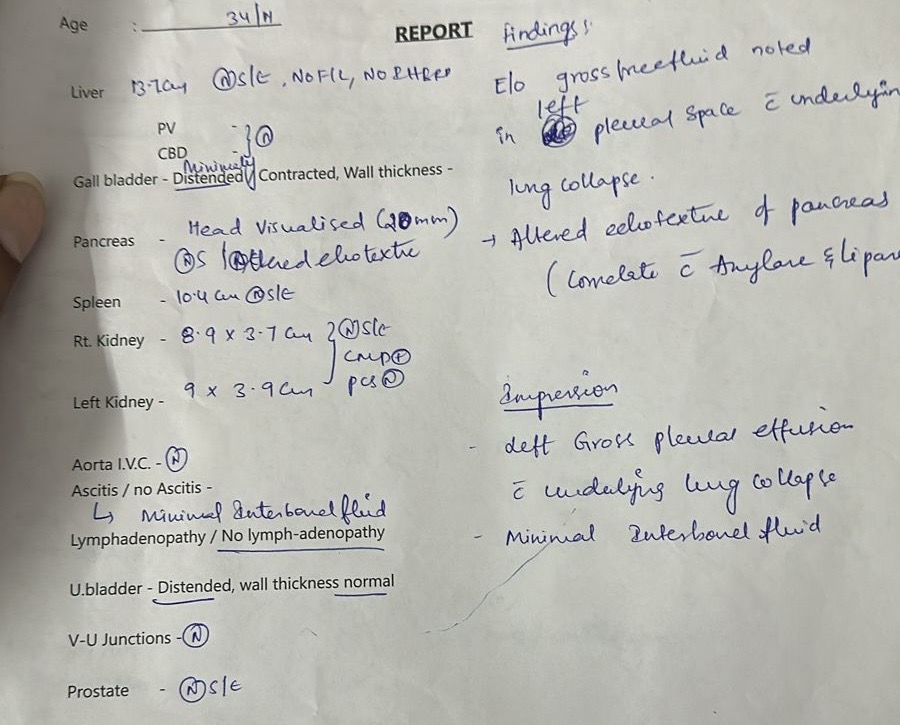 Age : 34/M
REPORT
Liver 13.7cm Ⓝ S/E, NO F/L, NO IHBRD
PV - } Ⓝ
CBD -
Minimally
Gall bladder - Distended / Contracted, Wall thickness -
Pancreas - Head visualised (20mm)
Ⓝ S / Altered echotextre
Spleen - 10.4 cm Ⓝ S/E
Rt. Kidney - 8.9 x 3.7 cm } Ⓝ S/E
CMD ⊕
Left Kidney - 9 x 3.9 cm PCS Ⓝ
Aorta I.V.C. - Ⓝ
Ascitis / no Ascitis -
↳ Minimal Interbowel fluid
Lymphadenopathy / No lymph-adenopathy
U.bladder - Distended, wall thickness normal
V-U Junctions - Ⓝ
Prostate - Ⓝ S/E
Findings:
E/o gross freefluid noted
left
in pleural space c̄ underlyin
lung collapse.
→ Altered echotextre of pancreas
(Correlate c̄ Amylase & Lipas
Impression
- Left Gross pleural effusion
c̄ underlying lung collapse
- Minimal Interbowel fluid